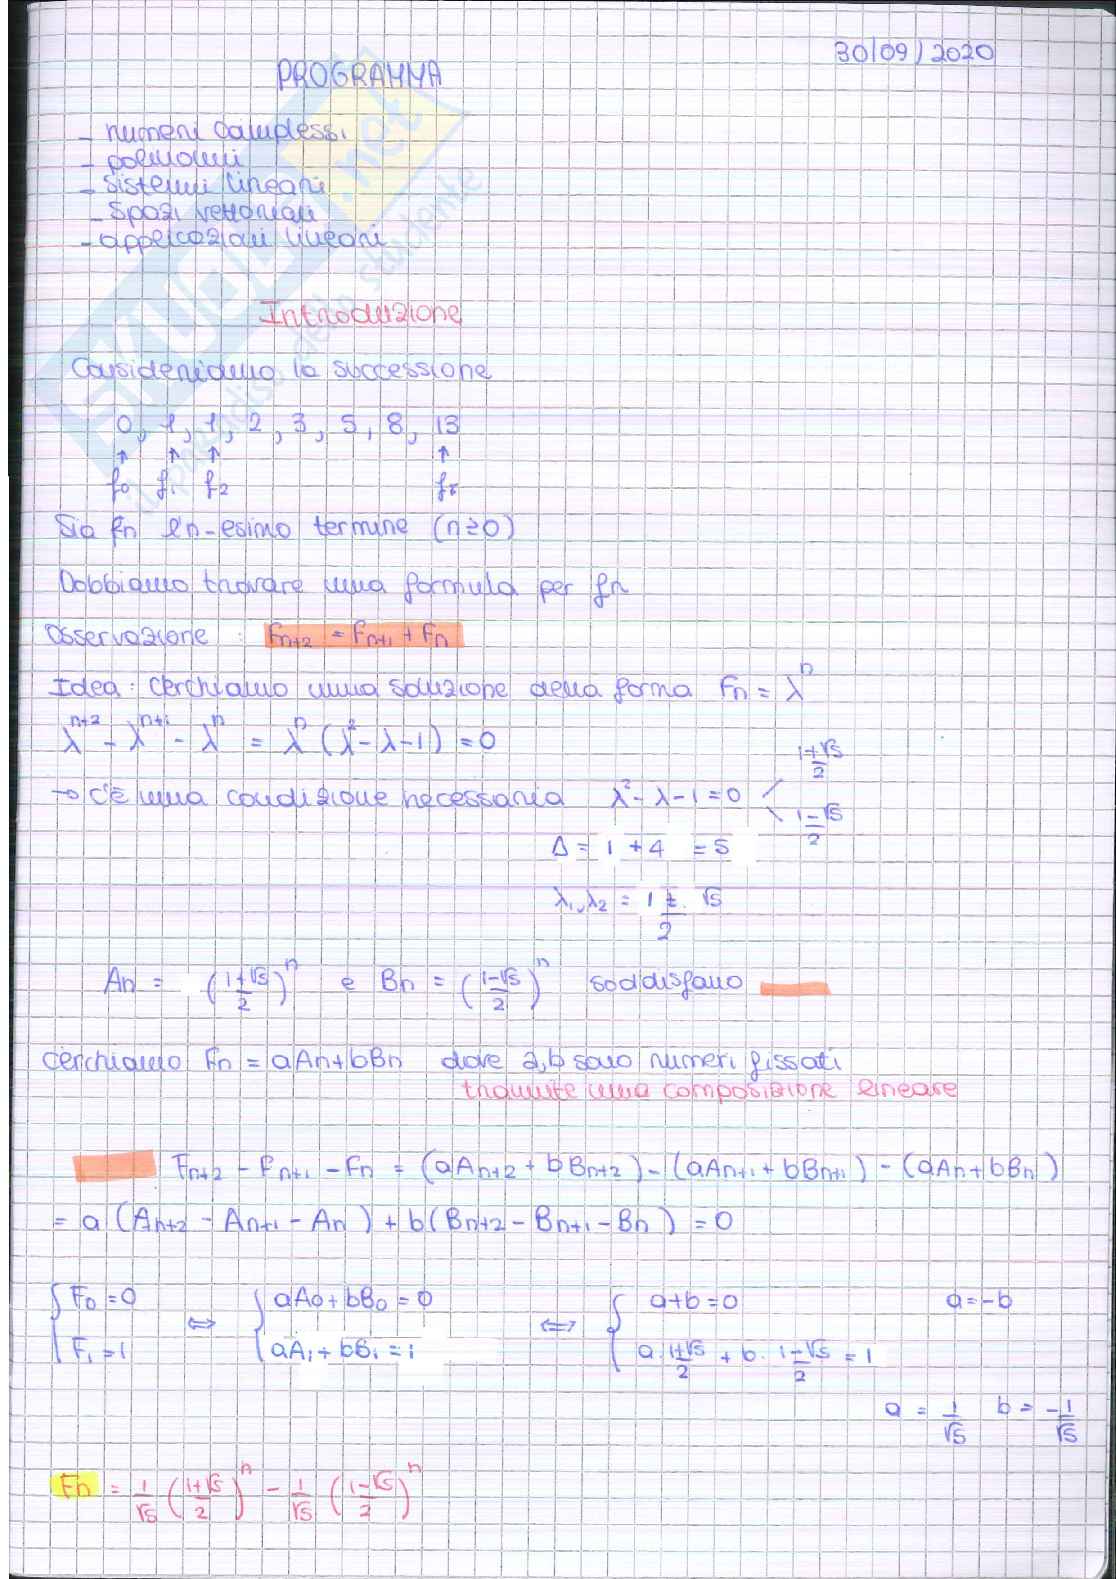 30/09/2020
PROGRAMMA
- numeri complessi
- polinomi
- sistemi lineari
- spazi vettoriali
- applicazioni lineari
Introduzione
Consideriamo la successione
0, 1, 1, 2, 3, 5, 8, 13
↑ ↑ ↑ ↑
f₀ f₁ f₂ f₇
Sia fn l'n-esimo termine (n≥0)
Dobbiamo trovare una formula per fn
Osservazione : Fn+2 = Fn+1 + Fn
Idea: cerchiamo una soluzione della forma Fn = λⁿ
λⁿ⁺² - λⁿ⁺¹ - λⁿ = λⁿ (λ² - λ - 1) = 0
→ c'è una condizione necessaria λ² - λ - 1 = 0 < (1+√5)/2 (1-√5)/2
Δ = 1 + 4 = 5
λ₁,λ₂ = (1 ± √5)/2
An = ((1+√5)/2)ⁿ e Bn = ((1-√5)/2)ⁿ soddisfano
cerchiamo Fn = aAn + bBn dove a,b sono numeri fissati
tramite una composizione lineare
Fn+2 - Fn+1 - Fn = (aAn+2 + bBn+2) - (aAn+1 + bBn+1) - (aAn + bBn)
= a (An+2 - An+1 - An) + b(Bn+2 - Bn+1 - Bn) = 0
{ F₀ = 0 ⇔ { aA₀ + bB₀ = 0 ⇔ { a+b = 0 a = -b
F₁ = 1 aA₁ + bB₁ = 1 a · (1+√5)/2 + b · (1-√5)/2 = 1
a = 1/√5 b = -1/√5
Fn = 1/√5 ((1+√5)/2)ⁿ - 1/√5 ((1-√5)/2)ⁿ
SKUOLA.net
il paradiso dello studente